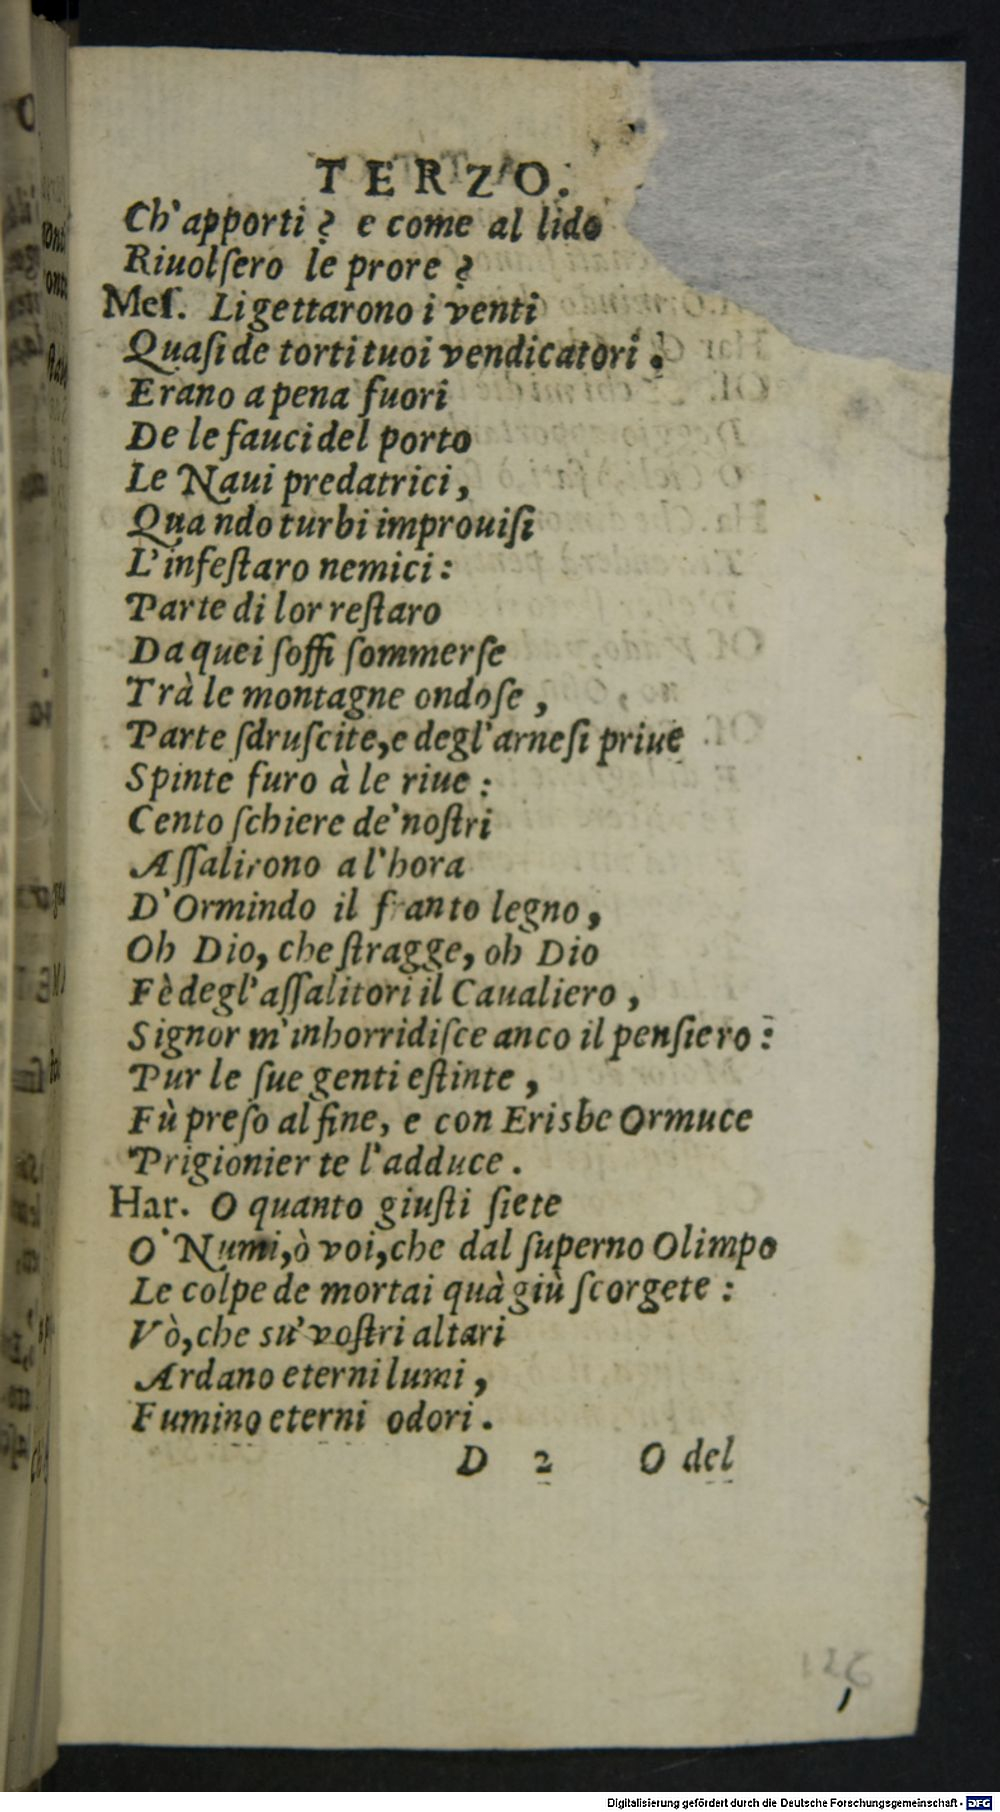 TERZO.
Ch'apporti? e come al lido
Riuolſero le prore?
Meſ. Li gettarono i venti
Quaſi de torti tuoi vendicatori.
Erano a pena fuori
De le fauci del porto
Le Naui predatrici,
Quando turbi improuiſi
L'infeſtaro nemici:
Parte di lor reſtaro
Da quei ſoffi ſommerſe
Trà le montagne ondoſe,
Parte ſdruſcite, e degl'arneſi priue
Spinte furo à le riue:
Cento ſchiere de' noſtri
Aſſalirono a l'hora
D'Ormindo il franto legno,
Oh Dio, che ſtragge, oh Dio
Fè degl'aſſalitori il Caualiero,
Signor m'inhorridiſce anco il penſiero:
Pur le ſue genti eſtinte,
Fù preſo al fine, e con Erisbe Ormuce
Prigionier te l'adduce.
Har. O quanto giuſti ſiete
O' Numi, ò voi, che dal ſuperno Olimpo
Le colpe de mortai quà giù ſcorgete:
Vò, che su' voſtri altari
Ardano eterni lumi,
Fumino eterni odori.
D 2 O del
126
Digitalisierung gefördert durch die Deutsche Forschungsgemeinschaft - DFG